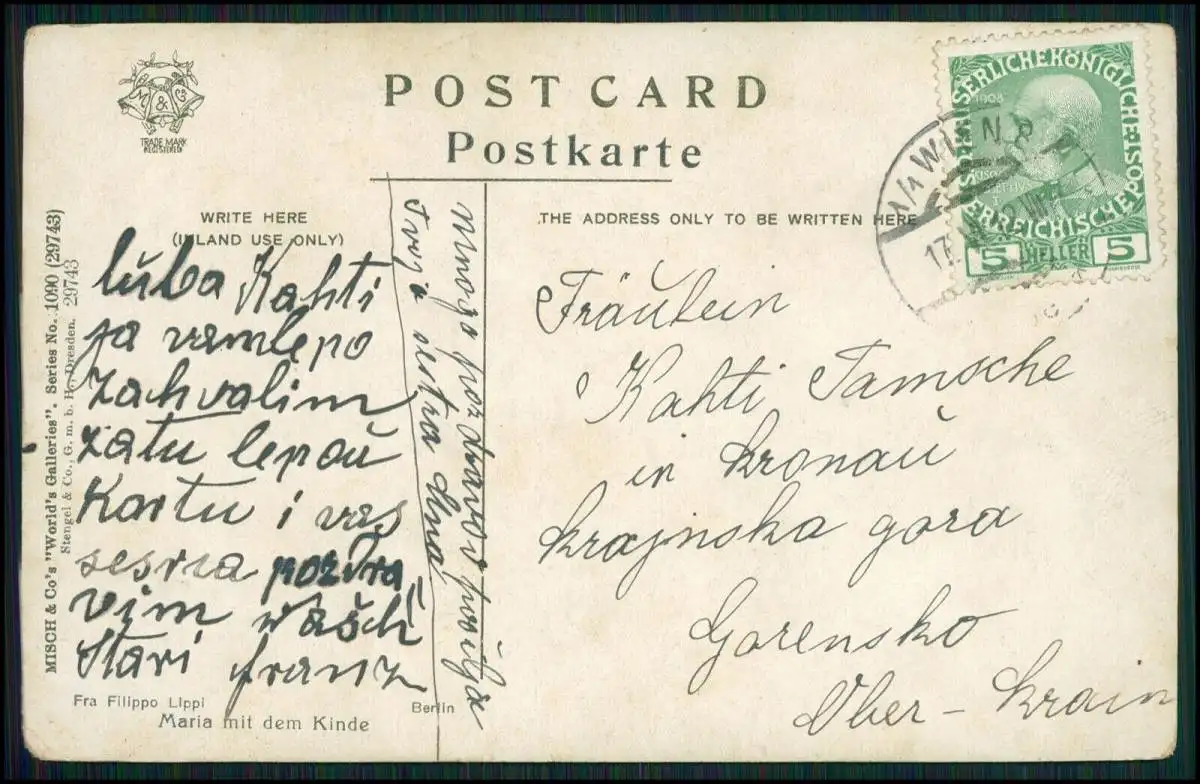 POST CARD
Postkarte
M & Co
TRADE MARK
REGISTERED
WRITE HERE
(INLAND USE ONLY)
THE ADDRESS ONLY TO BE WRITTEN HERE
MISCH & Co's "World's Galleries". Series No. 1090 (29743)
Stengel & Co., G. m. b. H., Dresden. 29743
luba Kahti
ja vamlepo
Zahvalim
zatu lepoŭ
Kartu i vas
sesrca pozdra
vim wašch
Stari franz
mnogo pozdravov pošilja
tvoja sestra Ana
Fräulein
Kahti Tamsche
in Kronaŭ
Krajnska gora
Gorensko
Ober-Krain
Fra Filippo Lippi
Berlin
Maria mit dem Kinde
KAISERLICHE KÖNIGLICHE ÖSTERREICHISCHE POST
1908
5 HELLER 5
1/1 WIEN
17